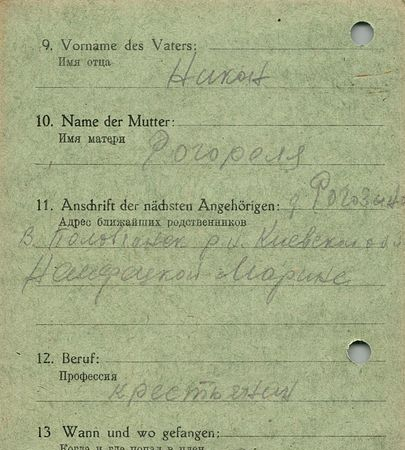 9. Vorname des Vaters:
Имя отца
Никон
10. Name der Mutter:
Имя матери
11. Anschrift der nächsten Angehörigen: д
Адрес ближайших родственников
В. р.н. Киевской об
Марине
12. Beruf:
Профессия
крестьянин
13 Wann und wo gefangen:
Когда и где попал в плен